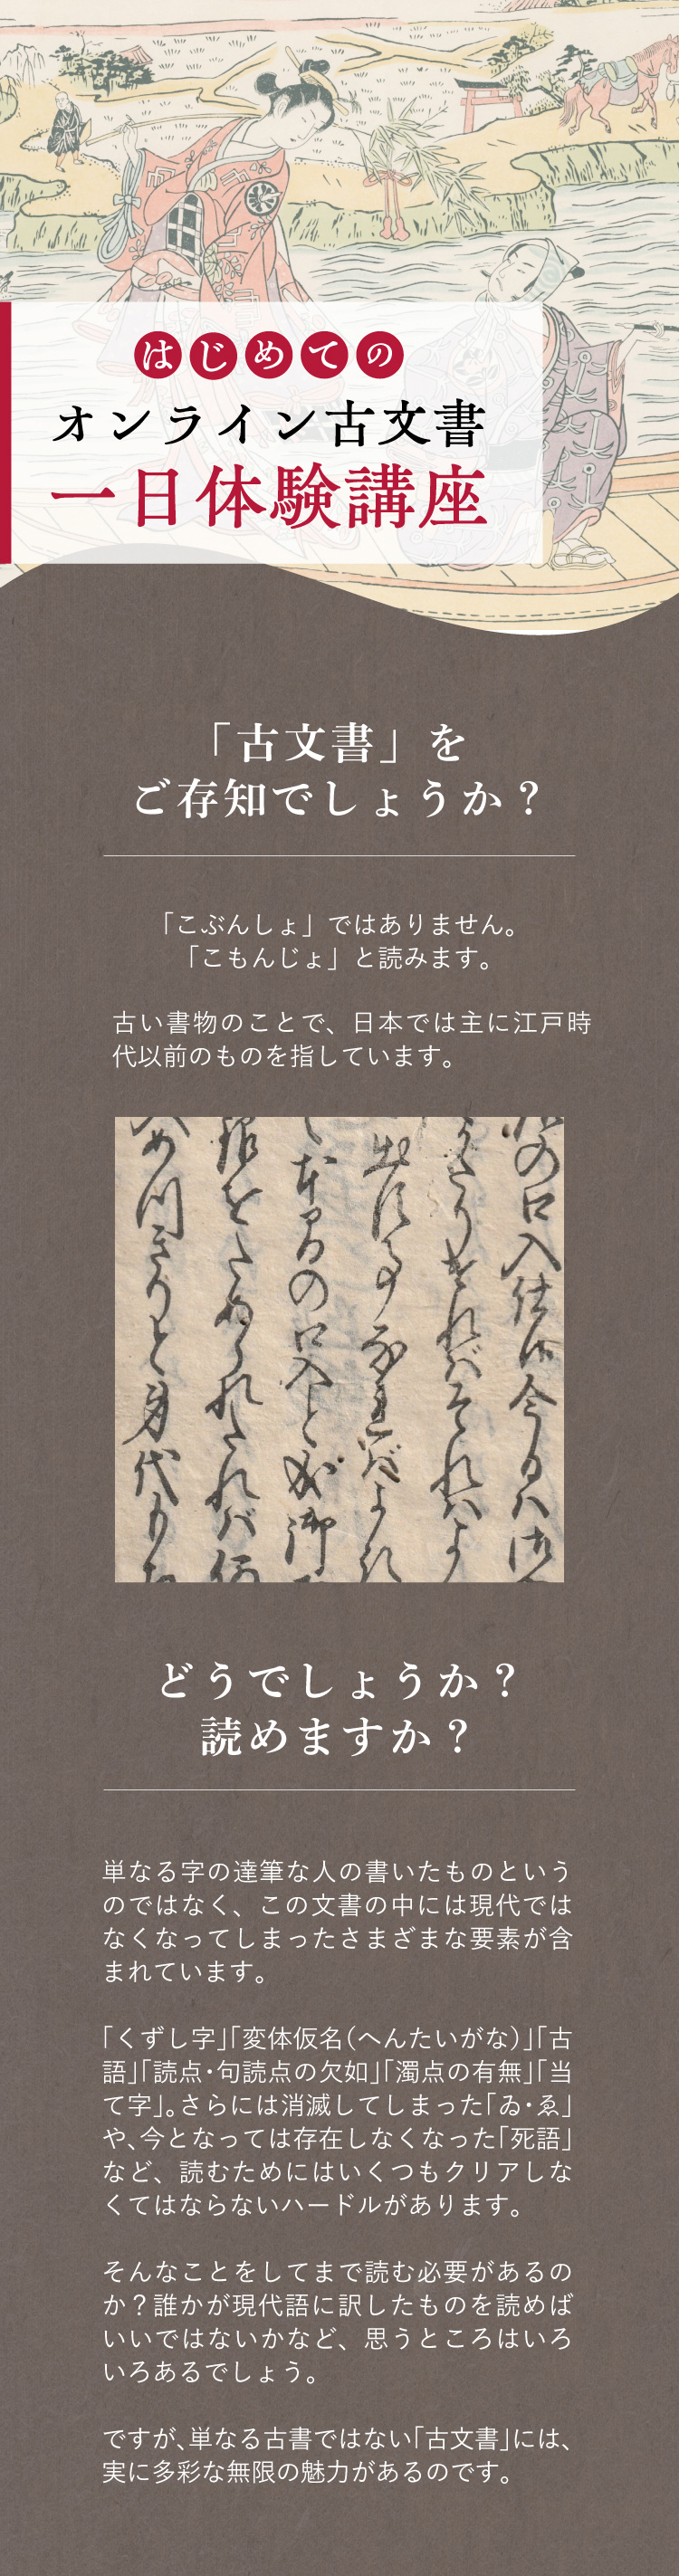 はじめての
オンライン古文書
一日体験講座
「古文書」を
ご存知でしょうか？
「こぶんしょ」ではありません。
「こもんじょ」と読みます。
古い書物のことで、日本では主に江戸時
代以前のものを指しています。
どうでしょうか？
読めますか？
単なる字の達筆な人の書いたものという
のではなく、この文書の中には現代では
なくなってしまったさまざまな要素が含
まれています。
「くずし字」「変体仮名（へんたいがな）」「古
語」「読点・句読点の欠如」「濁点の有無」「当
て字」。さらには消滅してしまった「ゐ・ゑ」
や、今となっては存在しなくなった「死語」
など、読むためにはいくつもクリアしな
くてはならないハードルがあります。
そんなことをしてまで読む必要があるの
か？誰かが現代語に訳したものを読めば
いいではないかなど、思うところはいろ
いろあるでしょう。
ですが、単なる古書ではない「古文書」には、
実に多彩な無限の魅力があるのです。